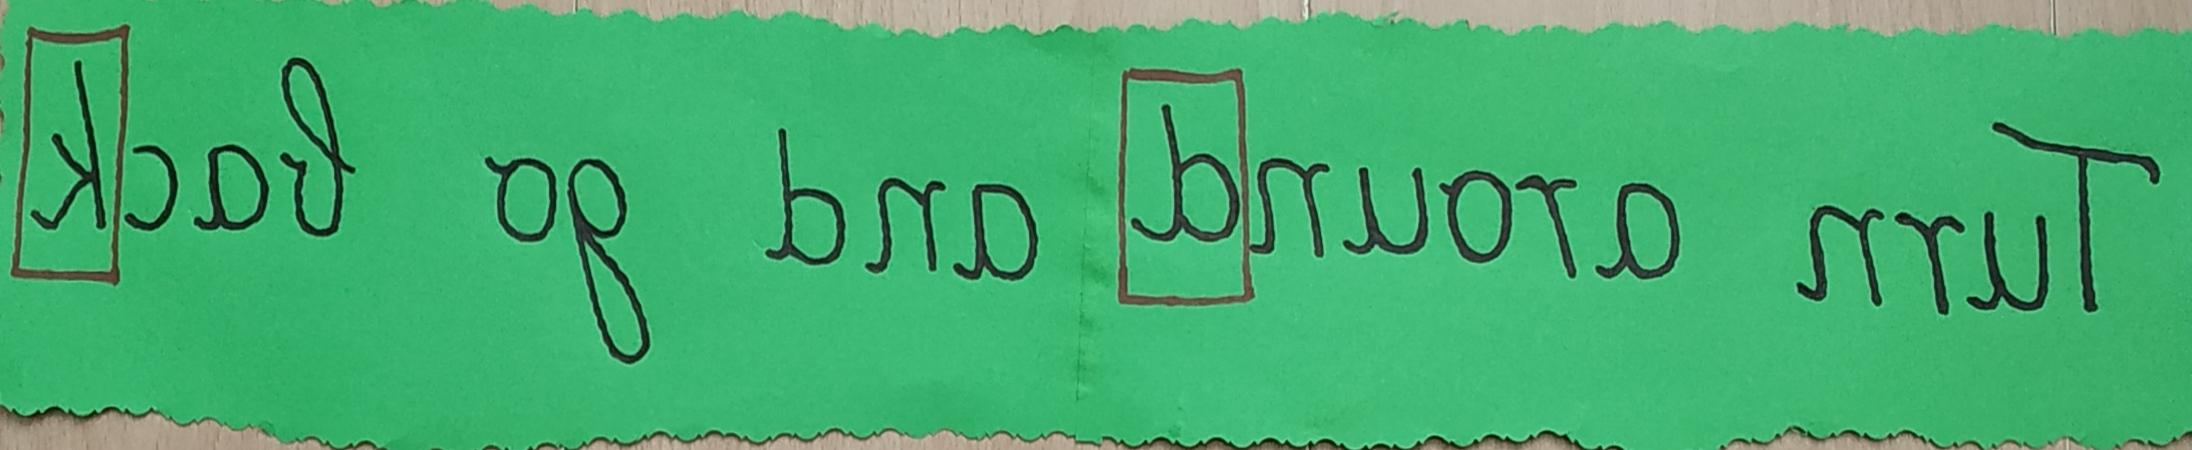 Turn around and go back